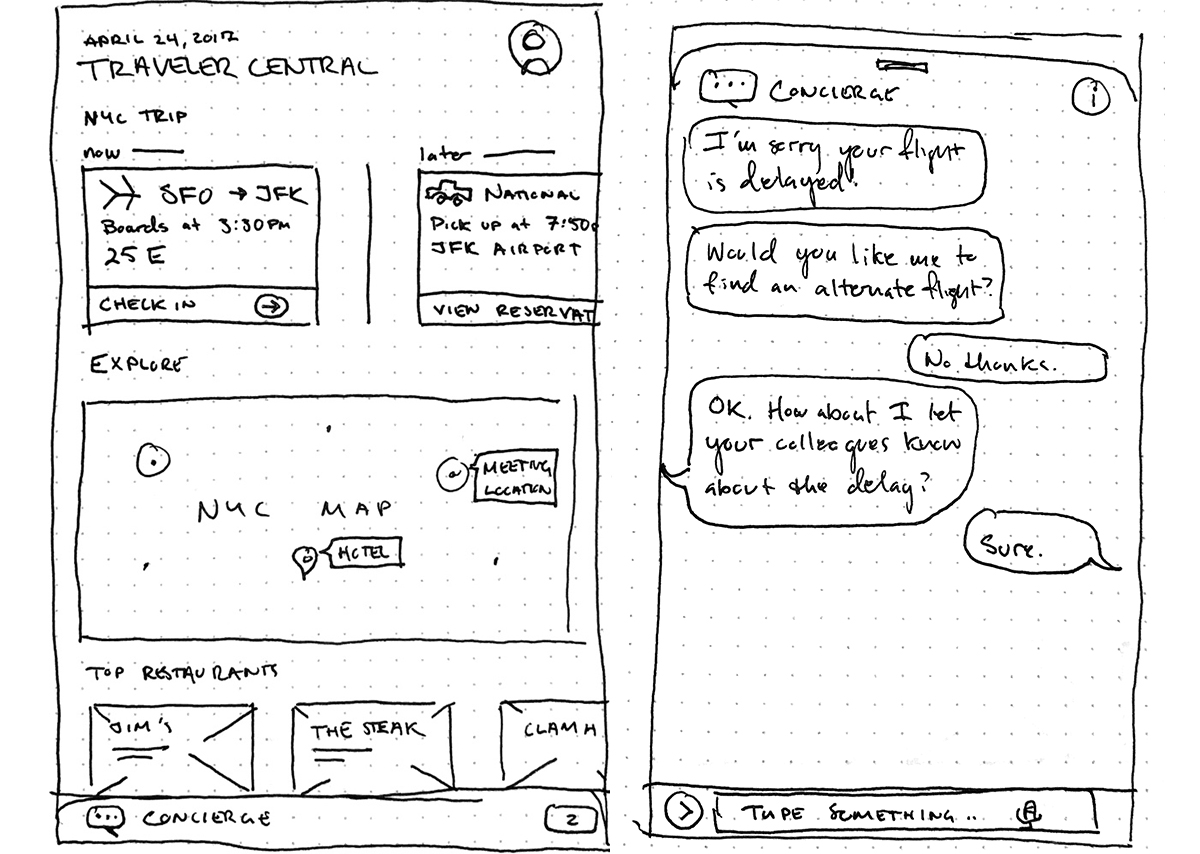 APRIL 24, 2017
TRAVELER CENTRAL
NYC TRIP
now
SFO → JFK
Boards at 3:30PM
25 E
CHECK IN
later
NATIONAL
Pick up at 7:50
JFK AIRPORT
VIEW RESERVAT
EXPLORE
NYC MAP
MEETING
LOCATION
HOTEL
TOP RESTAURANTS
JIM'S
THE STEAK
CLAM H
CONCIERGE
2
CONCIERGE
i
I'm sorry your flight
is delayed!
Would you like me to
find an alternate flight?
No thanks.
OK. How about I let
your colleagues know
about the delay?
Sure.
TYPE SOMETHING..